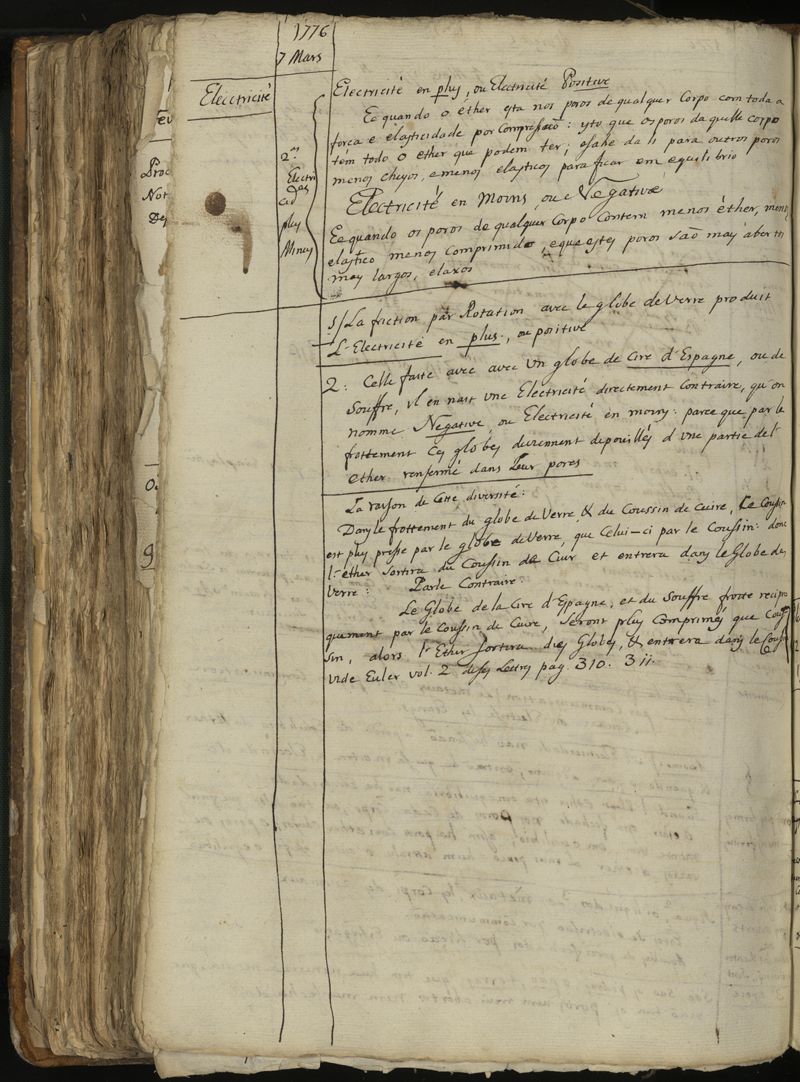 1776
7 Mars
Electricité
2.as
Electri
cid
des
plus
Minus
Fev
Proc
Not
De
Electricité en plus, ou Electricité Positive
Ee quando o ether esta nos poros de qualquer Corpo com toda a
força e elasticidade por Compressaõ: isto que os poros daquelle corpo
tem todo o ether que podem ter; e sahe da li para outros poros
menos cheyos, e menos elasticos para ficar em equilibrio
Electricité en moins, ou Negative
Ee quando os poros de qualquer Corpo Contem menos éther, menos
elastico menos Comprimido, e que estes poros saõ may abertos
may largos, e laxos
1/ La friction par Rotation avec le globe de Verre produit
L'Electricité en plus, ou positive
2: Celle faite avec avec un globe de Cire d'Espagne, ou de
Souffre, il en nait une Electricité directement Contraire, qu'on
nomme Negative, ou Electricité en moins: parce que par le
frottement Ces globes deviennent depouillés d'une partie del'
ether renfermé dans Leur pores
La raison de Cette diversité:
Dans le frottement du globe de Verre & du Coussin de Cuire, Le Coussin
est plus pressé par le globe de Verre, que Celui-ci par le Coussin: donc
l'ether sortira du Coussin de Cuir et entrera dans le Globe de
Verre: Parle Contraire:
Le Globe de la Cire d'Espagne, et du Souffre frotté recipro
quement par le Coussin de Cuire, seront plus Comprimés que Cous
sin, alors l'Ether sortira des Globes, & entrera dans le Couss
vide Euler vol. 2 de ses Lettres pag. 310. 311.